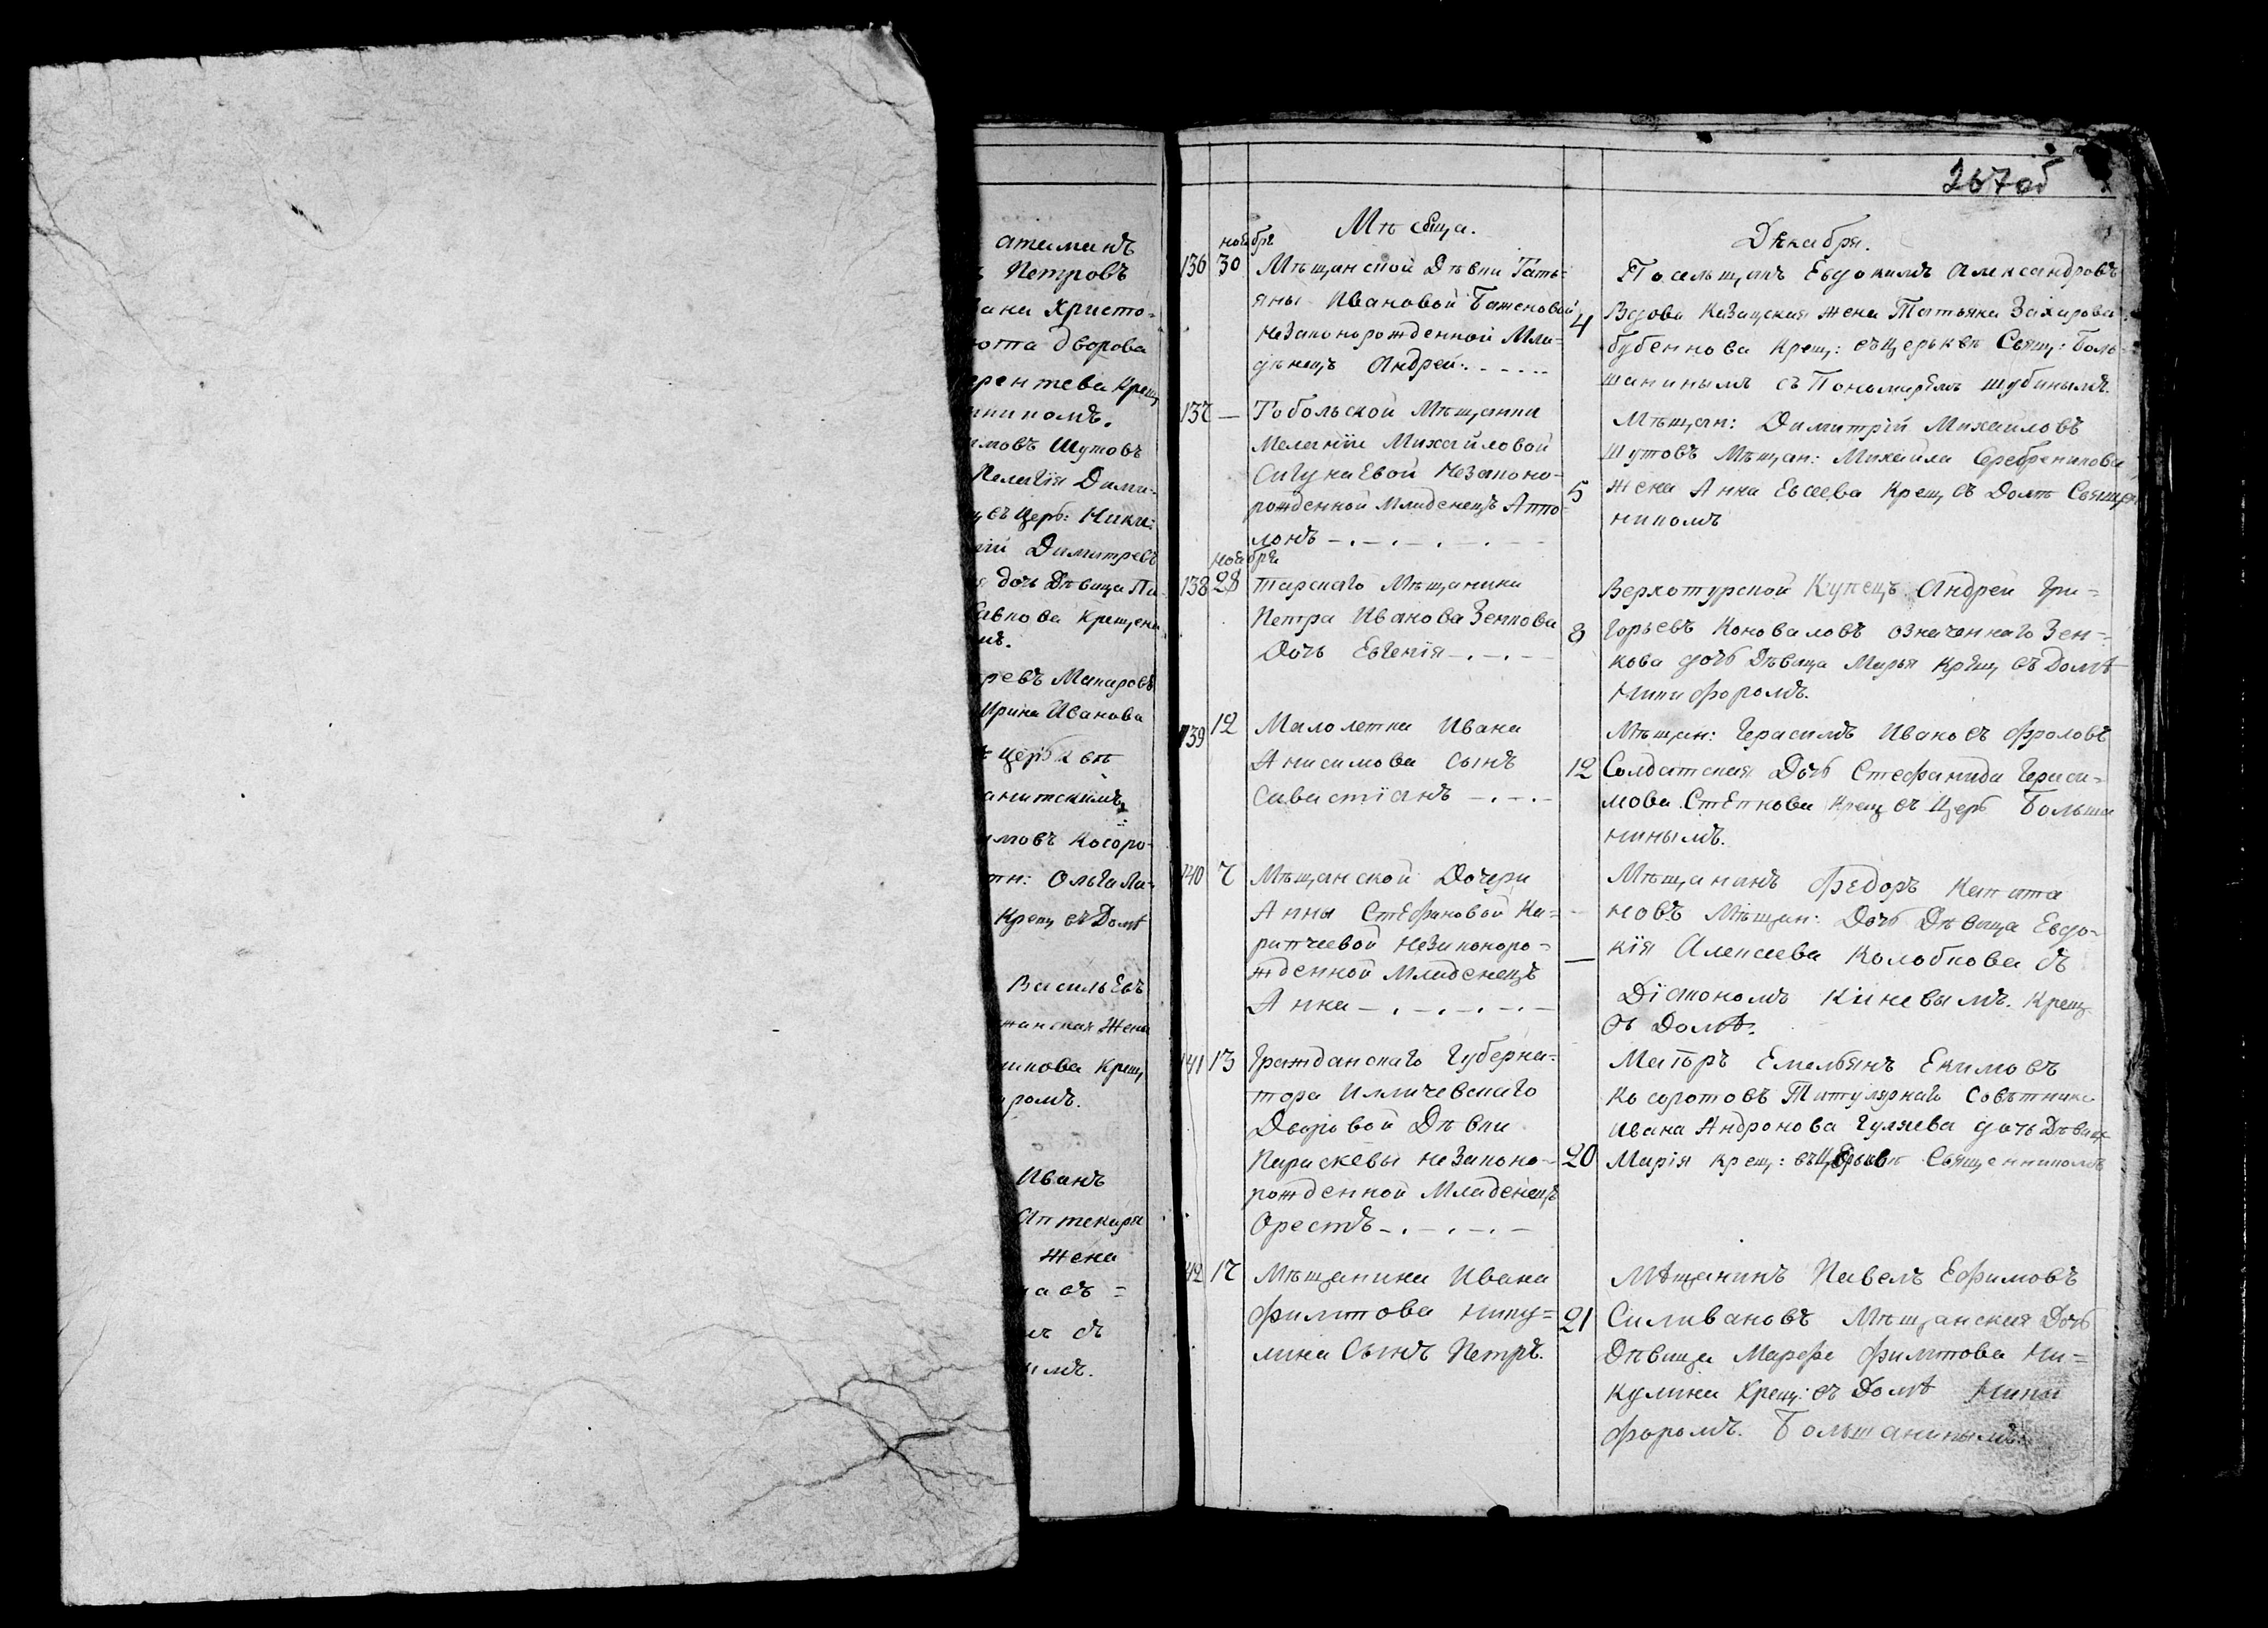 267 об
атаманъ
Петровъ
Христо=
дворова
Крещ
Шутовъ
Пелагія Дими=
въ Церк: Ники:
Димитревъ
дочь Дѣвица Па
Крещена
Макаровъ
Ирина Иванова
Церквѣ
Косоро-
Ольга Ла-
Крещ въ Домѣ
Васильевъ
Жена
Крещ
Иванъ
Аптекаря
Жена
Мѣсяца. Декабря.
ноября
136 30 Мѣщанской Дѣвки Тать=
яны Ивановой Баженовой
незаконорожденной Мла=
денецъ Андрей.
Посельщикъ Евдокимъ Александровъ
4 Вдова Казацская жена Татьяна Захарова
бубеннова Крещ: въ Церьквѣ Свящ: Боль=
шанинымъ съ Пономаремъ шубинымъ.
137 — Тобольской Мѣщанки
Меланіи Михайловой
Сигунаевой незаконо-
рожденной младенецъ Аппо=
лонъ
Мѣщан: Димитрій Михаиловъ
Шутовъ Мѣщан: Михаила Серебреникова
5 жена Анна Евсеева Крещ въ Домѣ Священ
никомъ
ноября
138 28 Тарскаго Мѣщанина
Петра Иванова Зенкова
Дочь Евгенія
Верхотурской Купецъ Андрей Гри=
8 горьевъ Коноваловъ означеннаго Зен=
кова дочь Дѣвица Марья Крещ въ Домѣ
Никифоромъ.
139 12 Малолетка Ивана
Анисимова сынъ
Савастіанъ
Мѣщан: Герасимъ Ивановъ Фроловъ
12 Солдатская Дочь Стефанида Гераси=
мова Степкова Крещ въ Церк Больша
нинымъ.
140 7 Мѣщанской Дочери
Анны Стефановой Ка=
рапчеевой незаконоро=
жденной младенецъ
Анна
Мѣщанинъ Федоръ Капита
новъ Мѣщан: Дочь Дѣвица Евдо=
— кія Алексеева Колобкова съ
Діакономъ Киневымъ. Крещ
въ Домѣ.
141 13 Гражданскаго Губерна=
тора Илличевскаго
Дворовой Дѣвки
Параскевы незаконо-
рожденной Младенецъ
Орестъ
Маіоръ Емельянъ Екимовъ
Косоротовъ Титулярнаго Совѣтника
Ивана Андронова Гуляева дочь Дѣвица
20 Марія крещ: въ Церьквѣ Священникомъ
142 17 Мѣщанина Ивана
Филатова Нику=
лина Сынъ Петръ.
Мѣщанинъ Павелъ Ефимовъ
21 Силивановъ Мѣщанская Дочь
Дѣвица Марфа Филатова Ни=
кулина Крещ: въ Домѣ Ники
форомъ. Большанинымъ.